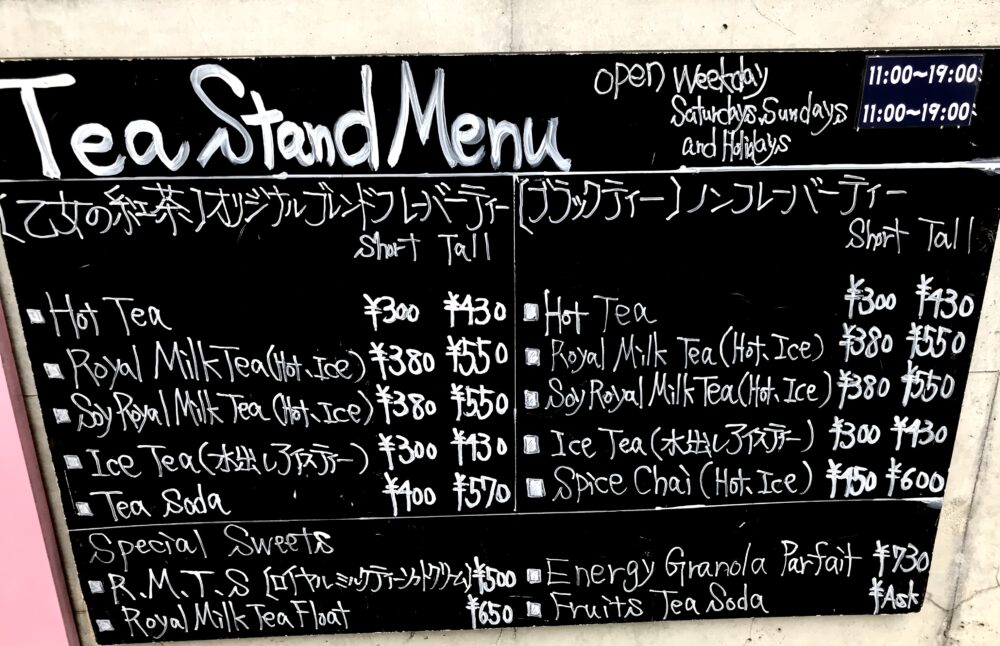 Tea Stand Menu
open Weekday 11:00~19:00
Saturdays. Sundays and Holidays 11:00~19:00
[乙女の紅茶]オリジナルブレンドフレーバーティー
Short Tall
Hot Tea ¥300 ¥430
Royal Milk Tea (Hot、Ice) ¥380 ¥550
Soy Royal Milk Tea (Hot、Ice) ¥380 ¥550
Ice Tea (水出しアイスティー) ¥300 ¥430
Tea Soda ¥400 ¥570
[ブラックティー]ノンフレーバーティー
Short Tall
Hot Tea ¥300 ¥430
Royal Milk Tea (Hot、Ice) ¥380 ¥550
Soy Royal Milk Tea (Hot、Ice) ¥380 ¥550
Ice Tea (水出しアイスティー) ¥300 ¥430
Spice Chai (Hot、Ice) ¥450 ¥600
Special Sweets
R.M.T.S [ロイヤルミルクティーソフトクリーム] ¥500
Royal Milk Tea Float ¥650
Energy Granola Parfait ¥730
Fruits Tea Soda ¥Ask